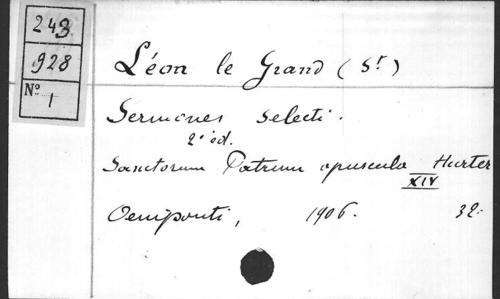 243
928
Nº 1
Léon le Grand (St)
Sermones selecti.
2e éd.
Sanctorum Patrum opuscula Hurter
XIV
Oeniponti, 1906. 32.